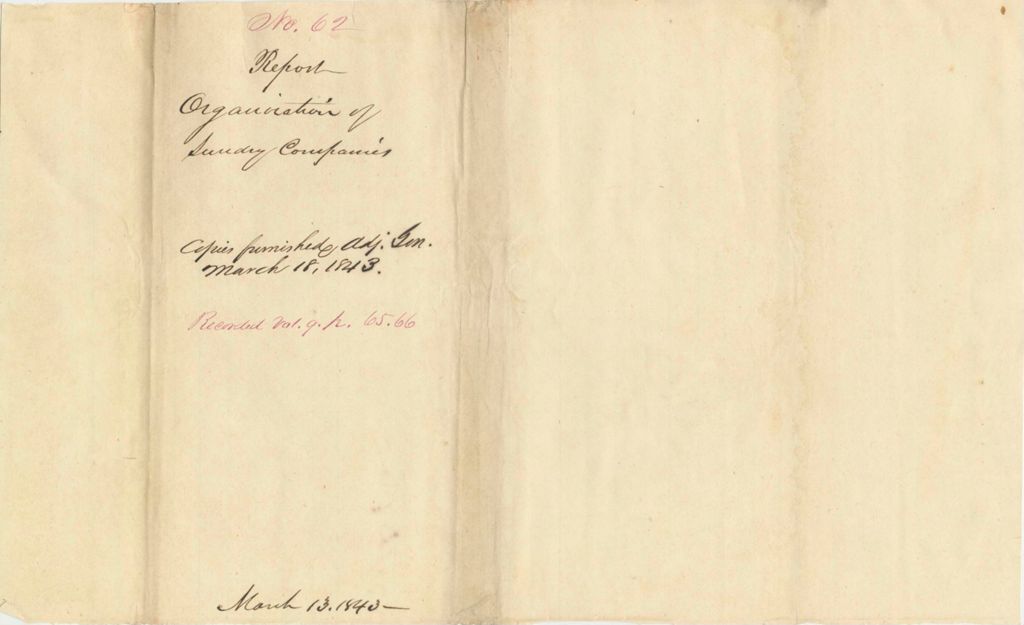 No. 62
Report
Organization of
Sundry Companies
Copies furnished, Adj. Gen.
March 18, 1843.
Recorded Vol. 9. p. 65.66
March 13. 1843—